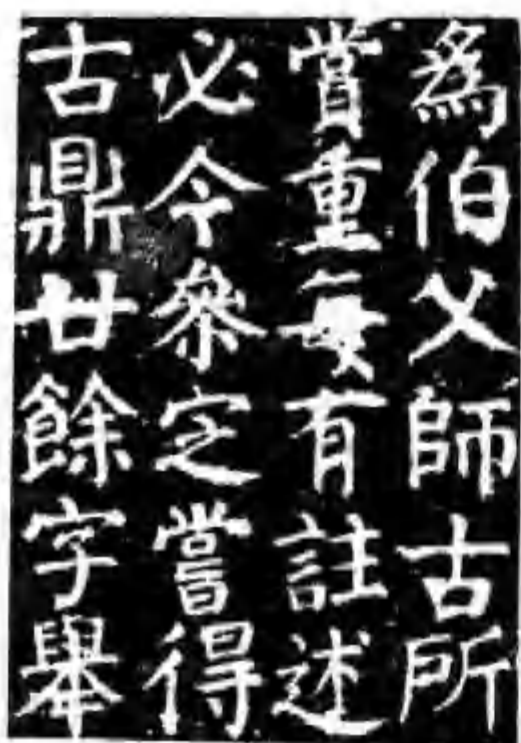 爲伯父師古所
賞重每有註述
必令參定嘗得
古鼎廿餘字舉